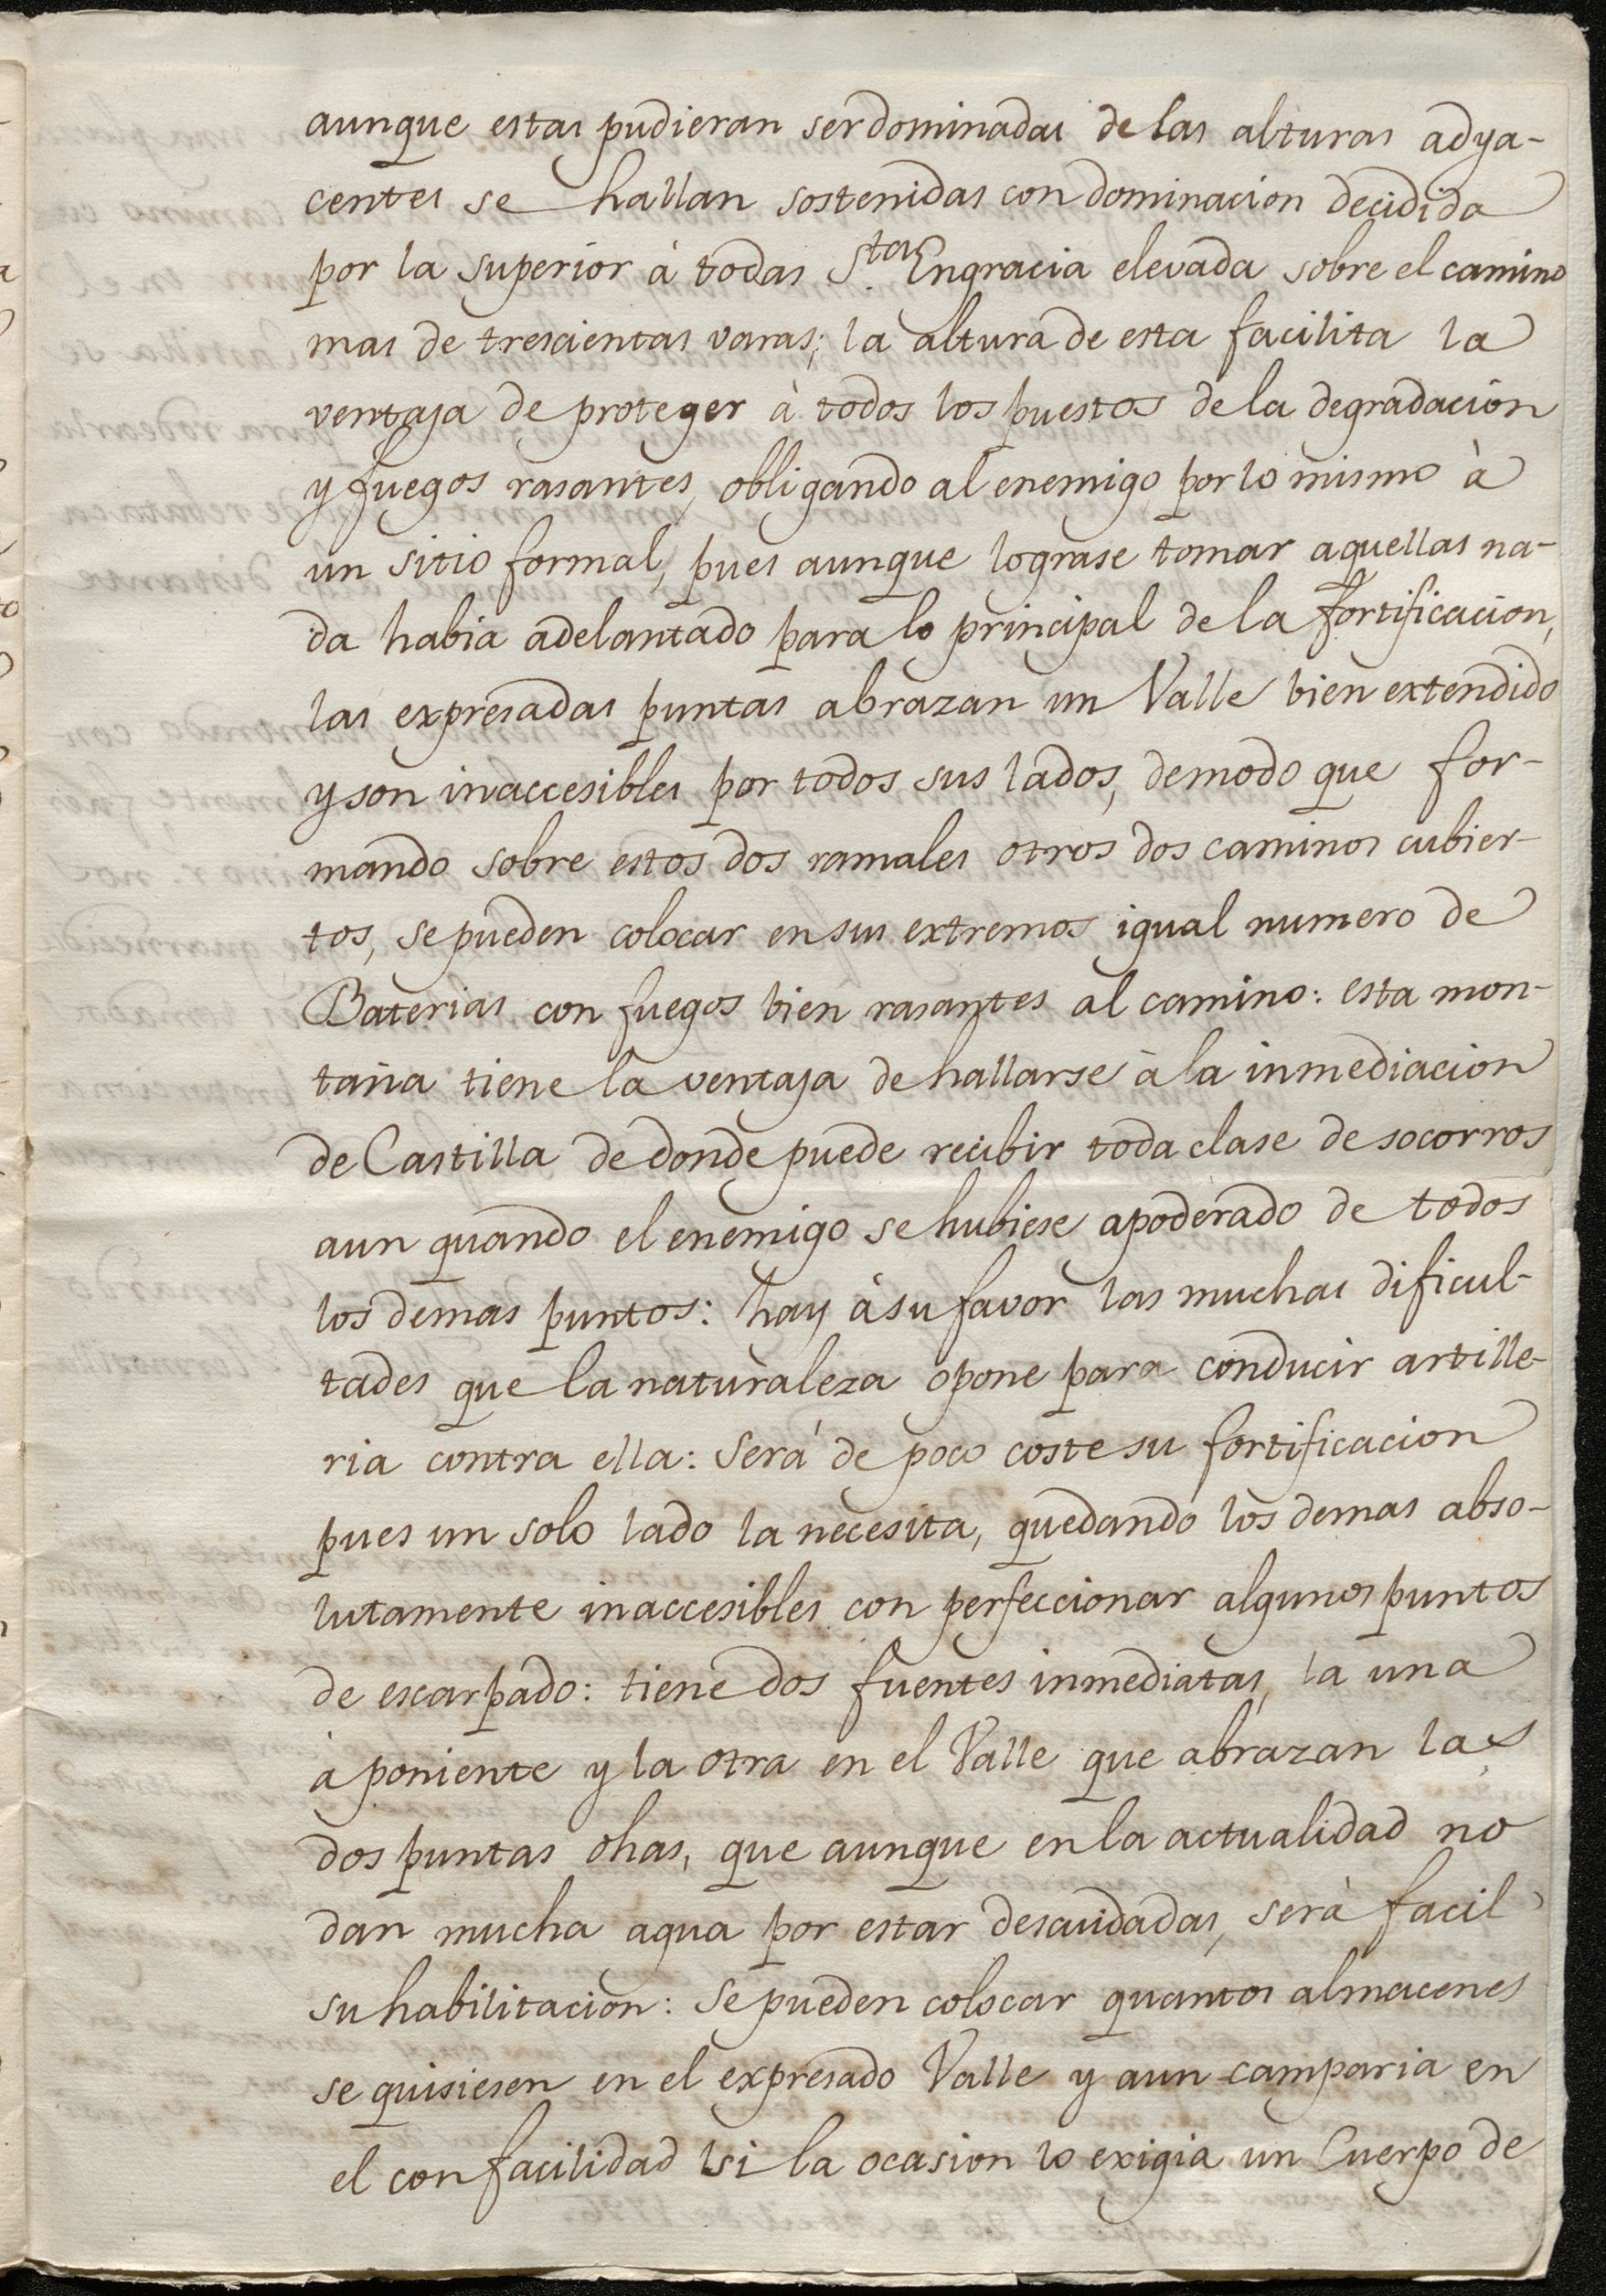 aunque estas pudieran ser dominadas de las alturas adya-
centes se hallan sostenidas con dominacion decidida
por la superior à todas S.ta Engracia elevada sobre el camino
mas de trescientas varas; la altura de esta facilita la
ventaja de proteger à todos los puestos de la degradacion
y fuegos rasantes, obligando al enemigo por lo mismo à
un sitio formal, pues aunque lograse tomar aquellas na-
da habia adelantado para lo principal de la fortificacion,
las expresadas puntas abrazan un Valle bien extendido
y son inaccesibles por todos sus lados, de modo que for-
mando sobre estos dos ramales otros dos caminos cubier-
tos, se pueden colocar en sus extremos igual numero de
Baterias con fuegos bien rasantes al camino: esta mon-
taña tiene la ventaja de hallarse à la inmediacion
de Castilla de donde puede recibir toda clase de socorros
aun quando el enemigo se hubiese apoderado de todos
los demas puntos: hay à su favor las muchas dificul-
tades que la naturaleza opone para conducir artille-
ria contra ella: Será de poco coste su fortificacion
pues un solo lado la necesita, quedando los demas abso-
lutamente inaccesibles con perfeccionar algunos puntos
de escarpado: tiene dos fuentes inmediatas, la una
à poniente y la otra en el Valle que abrazan las
dos puntas dhas, que aunque en la actualidad no
dan mucha agua por estar descuidadas, serà facil
su habilitacion: se pueden colocar quantos almacenes
se quisiesen en el expresado Valle y aun camparia en
el con facilidad si la ocasion lo exigia un Cuerpo de